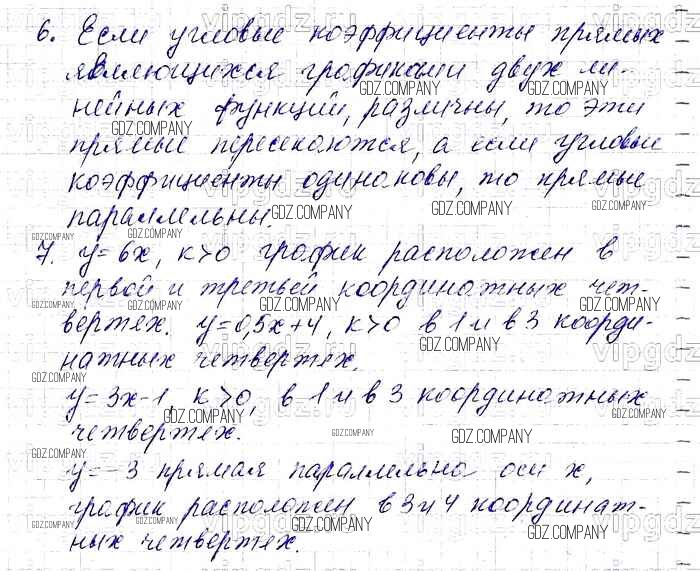 6. Если угловые коэффициенты прямых
являющихся графиками двух ли-
нейных функций, различны, то эти
прямые пересекаются, а если угловые
коэффициенты одинаковы, то прямые
параллельны.
7. y=6x, к>0 график расположен в
первой и третьей координатных чет-
вертях. y=0,5x+4 к>0 в 1 и в 3 коорди-
натных четвертях.
y=3x-1, к>0, в 1 и в 3 координатных
четвертях.
y=-3 прямая параллельна оси x,
график расположен в 3 и 4 координат-
ных четвертях.
GDZ.COMPANY
vipgdz.ru